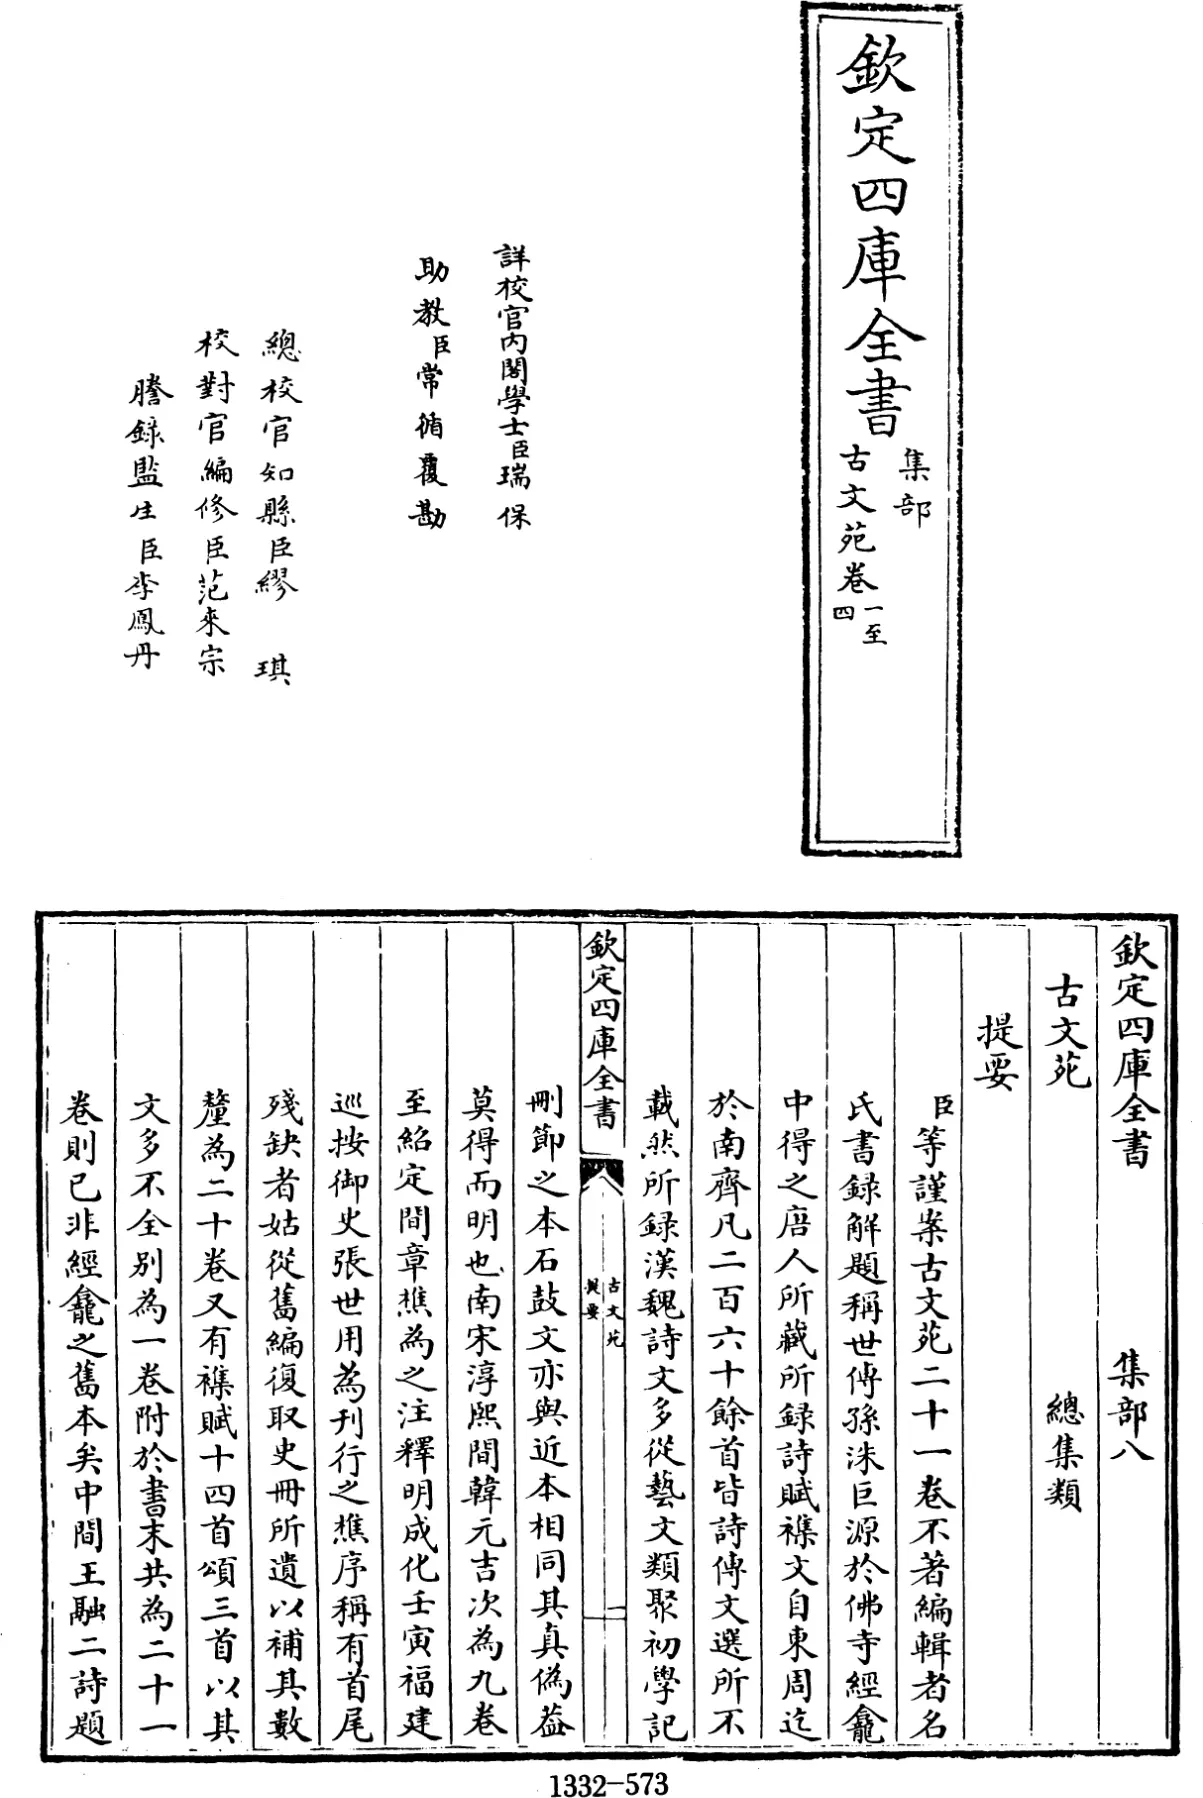 欽定四庫全書
集部
古文苑卷一至四
詳校官内閣學士臣瑞保
助教臣常循覆勘
總校官知縣臣繆琪
校對官編修臣范來宗
謄録監生臣李鳳丹
欽定四庫全書　集部八
古文苑　總集類
提要
臣等謹案古文苑二十一卷不著編輯者名
氏書録解題稱世傳孫洙巨源於佛寺經龕
中得之唐人所藏所録詩賦襍文自東周迄
於南齊凡二百六十餘首皆詩傳文選所不
載然所録漢魏詩文多從藝文類聚初學記
欽定四庫全書
古文苑
提要
一
刪節之本石鼓文亦與近本相同其真偽葢
莫得而明也南宋淳熙間韓元吉次為九卷
至紹定間章樵為之注釋明成化壬寅福建
巡按御史張世用為刊行之樵序稱有首尾
殘缺者姑從舊編復取史冊所遺以補其數
釐為二十卷又有襍賦十四首頌三首以其
文多不全别為一卷附於書末共為二十一
卷則已非經龕之舊本矣中間王融二詩題
1332-573